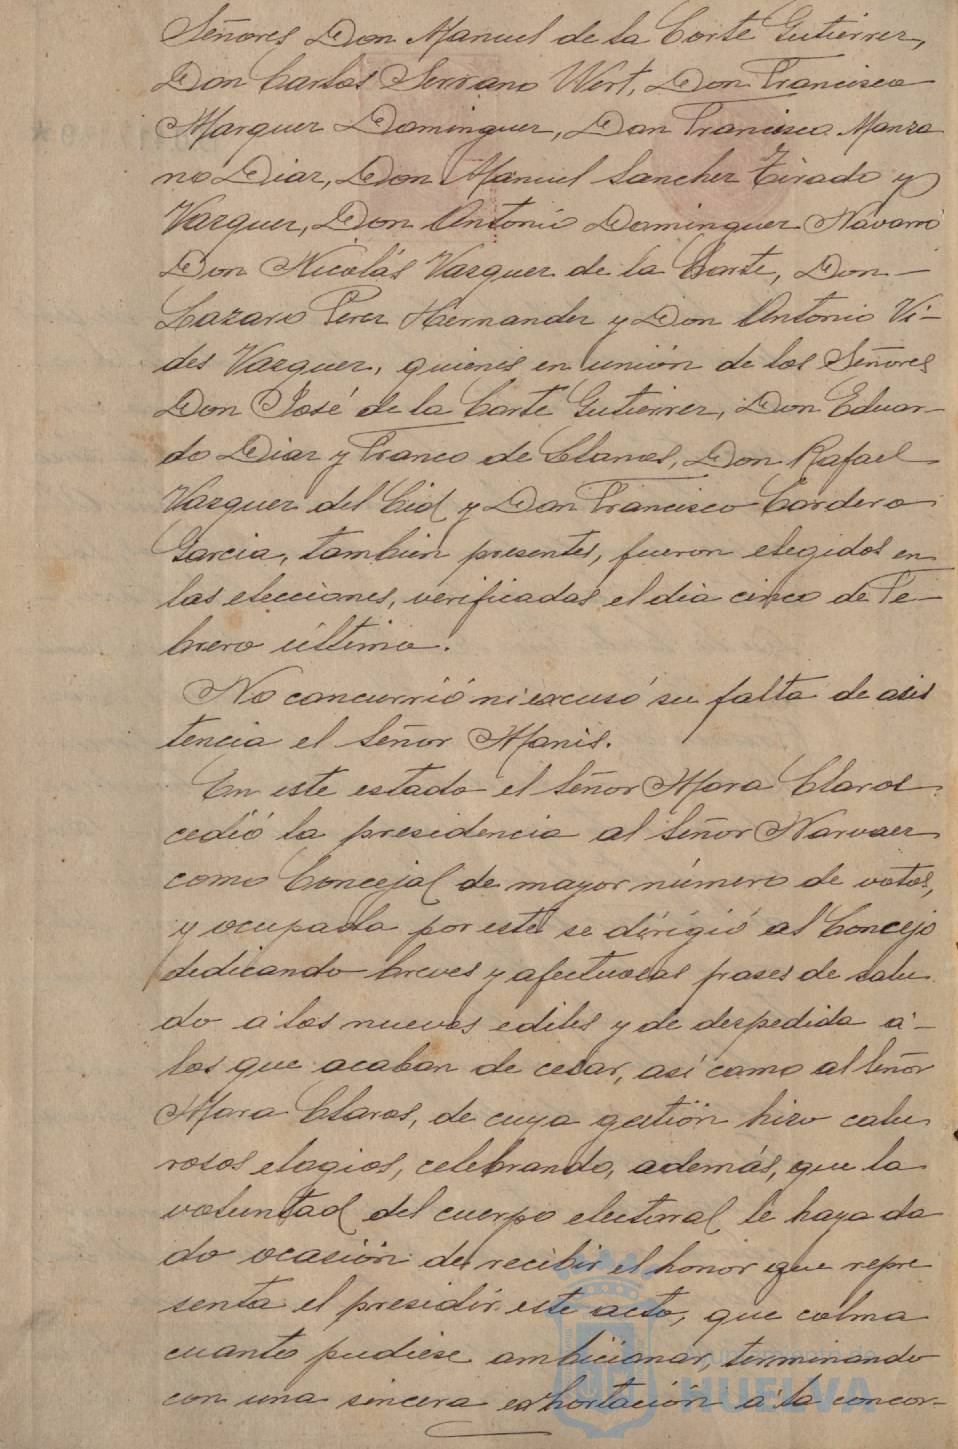 Señores Don Manuel de la Corte Gutierrez,
Don Carlos Serrano Wert, Don Francisco
Marquez Dominguez, Don Francisco Manza
no Diaz, Don Manuel Sanchez Tirado y
Vazquez, Don Antonio Dominguez Navarro
Don Nicolás Vazquez de la Corte, Don –
Lazaro Perez Hernandez y Don Antonio Vi-
des Vazquez, quienes en unión de los Señores
Don José de la Corte Gutierrez, Don Eduar-
do Diaz y Franco de Llanos, Don Rafael
Vazquez del Cid y Don Francisco Cordero
Garcia, tambien presentes, fueron elegidos en
las elecciones, verificadas el dia cinco de Fe-
brero último.
No concurrió ni excusó su falta de asis
tencia el Señor Manis.
En este estado el Señor Mora Claros
cedió la presidencia al Señor Narvaez
como Concejal de mayor número de votos,
y ocupada por este se dirigió al Concejo
dedicando breves y afectuosas frases de salu
do á los nuevos ediles y de despedida á –
los que acaban de cesar, así como al Señor
Mora Claros, de cuya gestión hizo calu
rosos elogios, celebrando, además, que la
voluntad del cuerpo electoral le haya da
do ocasión de recibir el honor que repre
senta el presidir este acto, que colma
cuanto pudiese ambicionar, terminando
con una sincera exhortación á la concor-
Ayuntamiento de
HUELVA